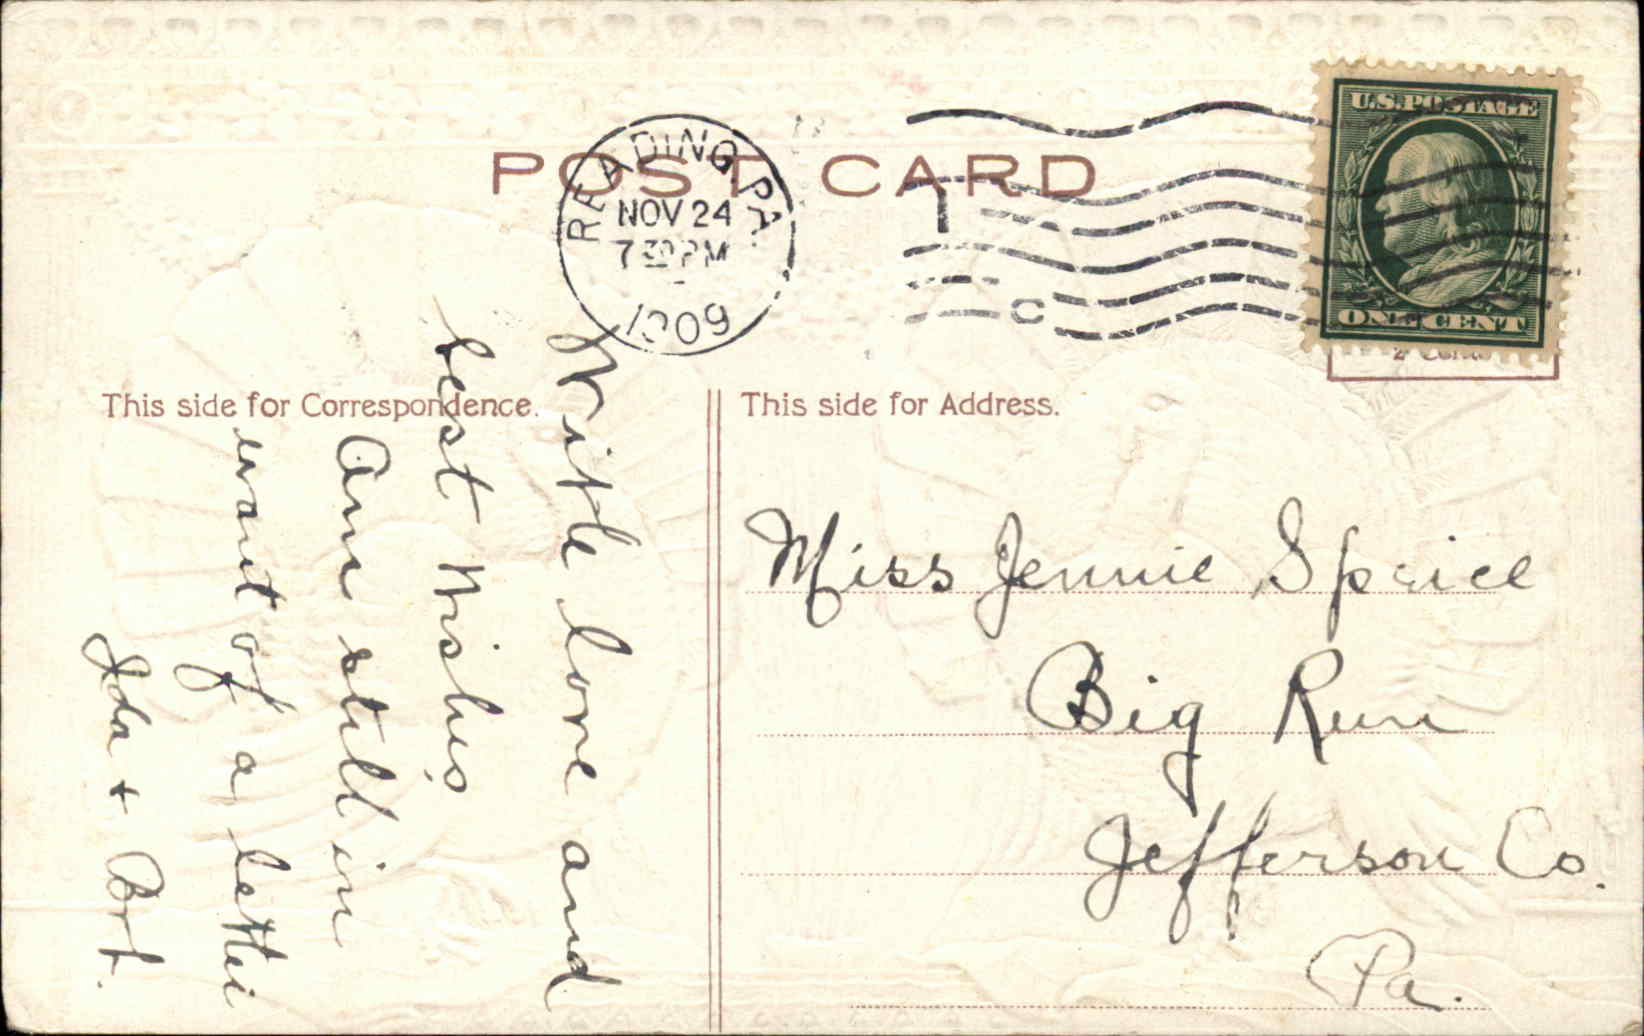 POST CARD
READING, PA.
NOV 24
7 30 PM
1909
1
C
U.S. POSTAGE
ONE CENT
This side for Correspondence.
This side for Address.
With love and
best wishes
Am still in
want of a letter
Ida + Bert.
Miss Jennie Speice
Big Run
Jefferson Co.
Pa.